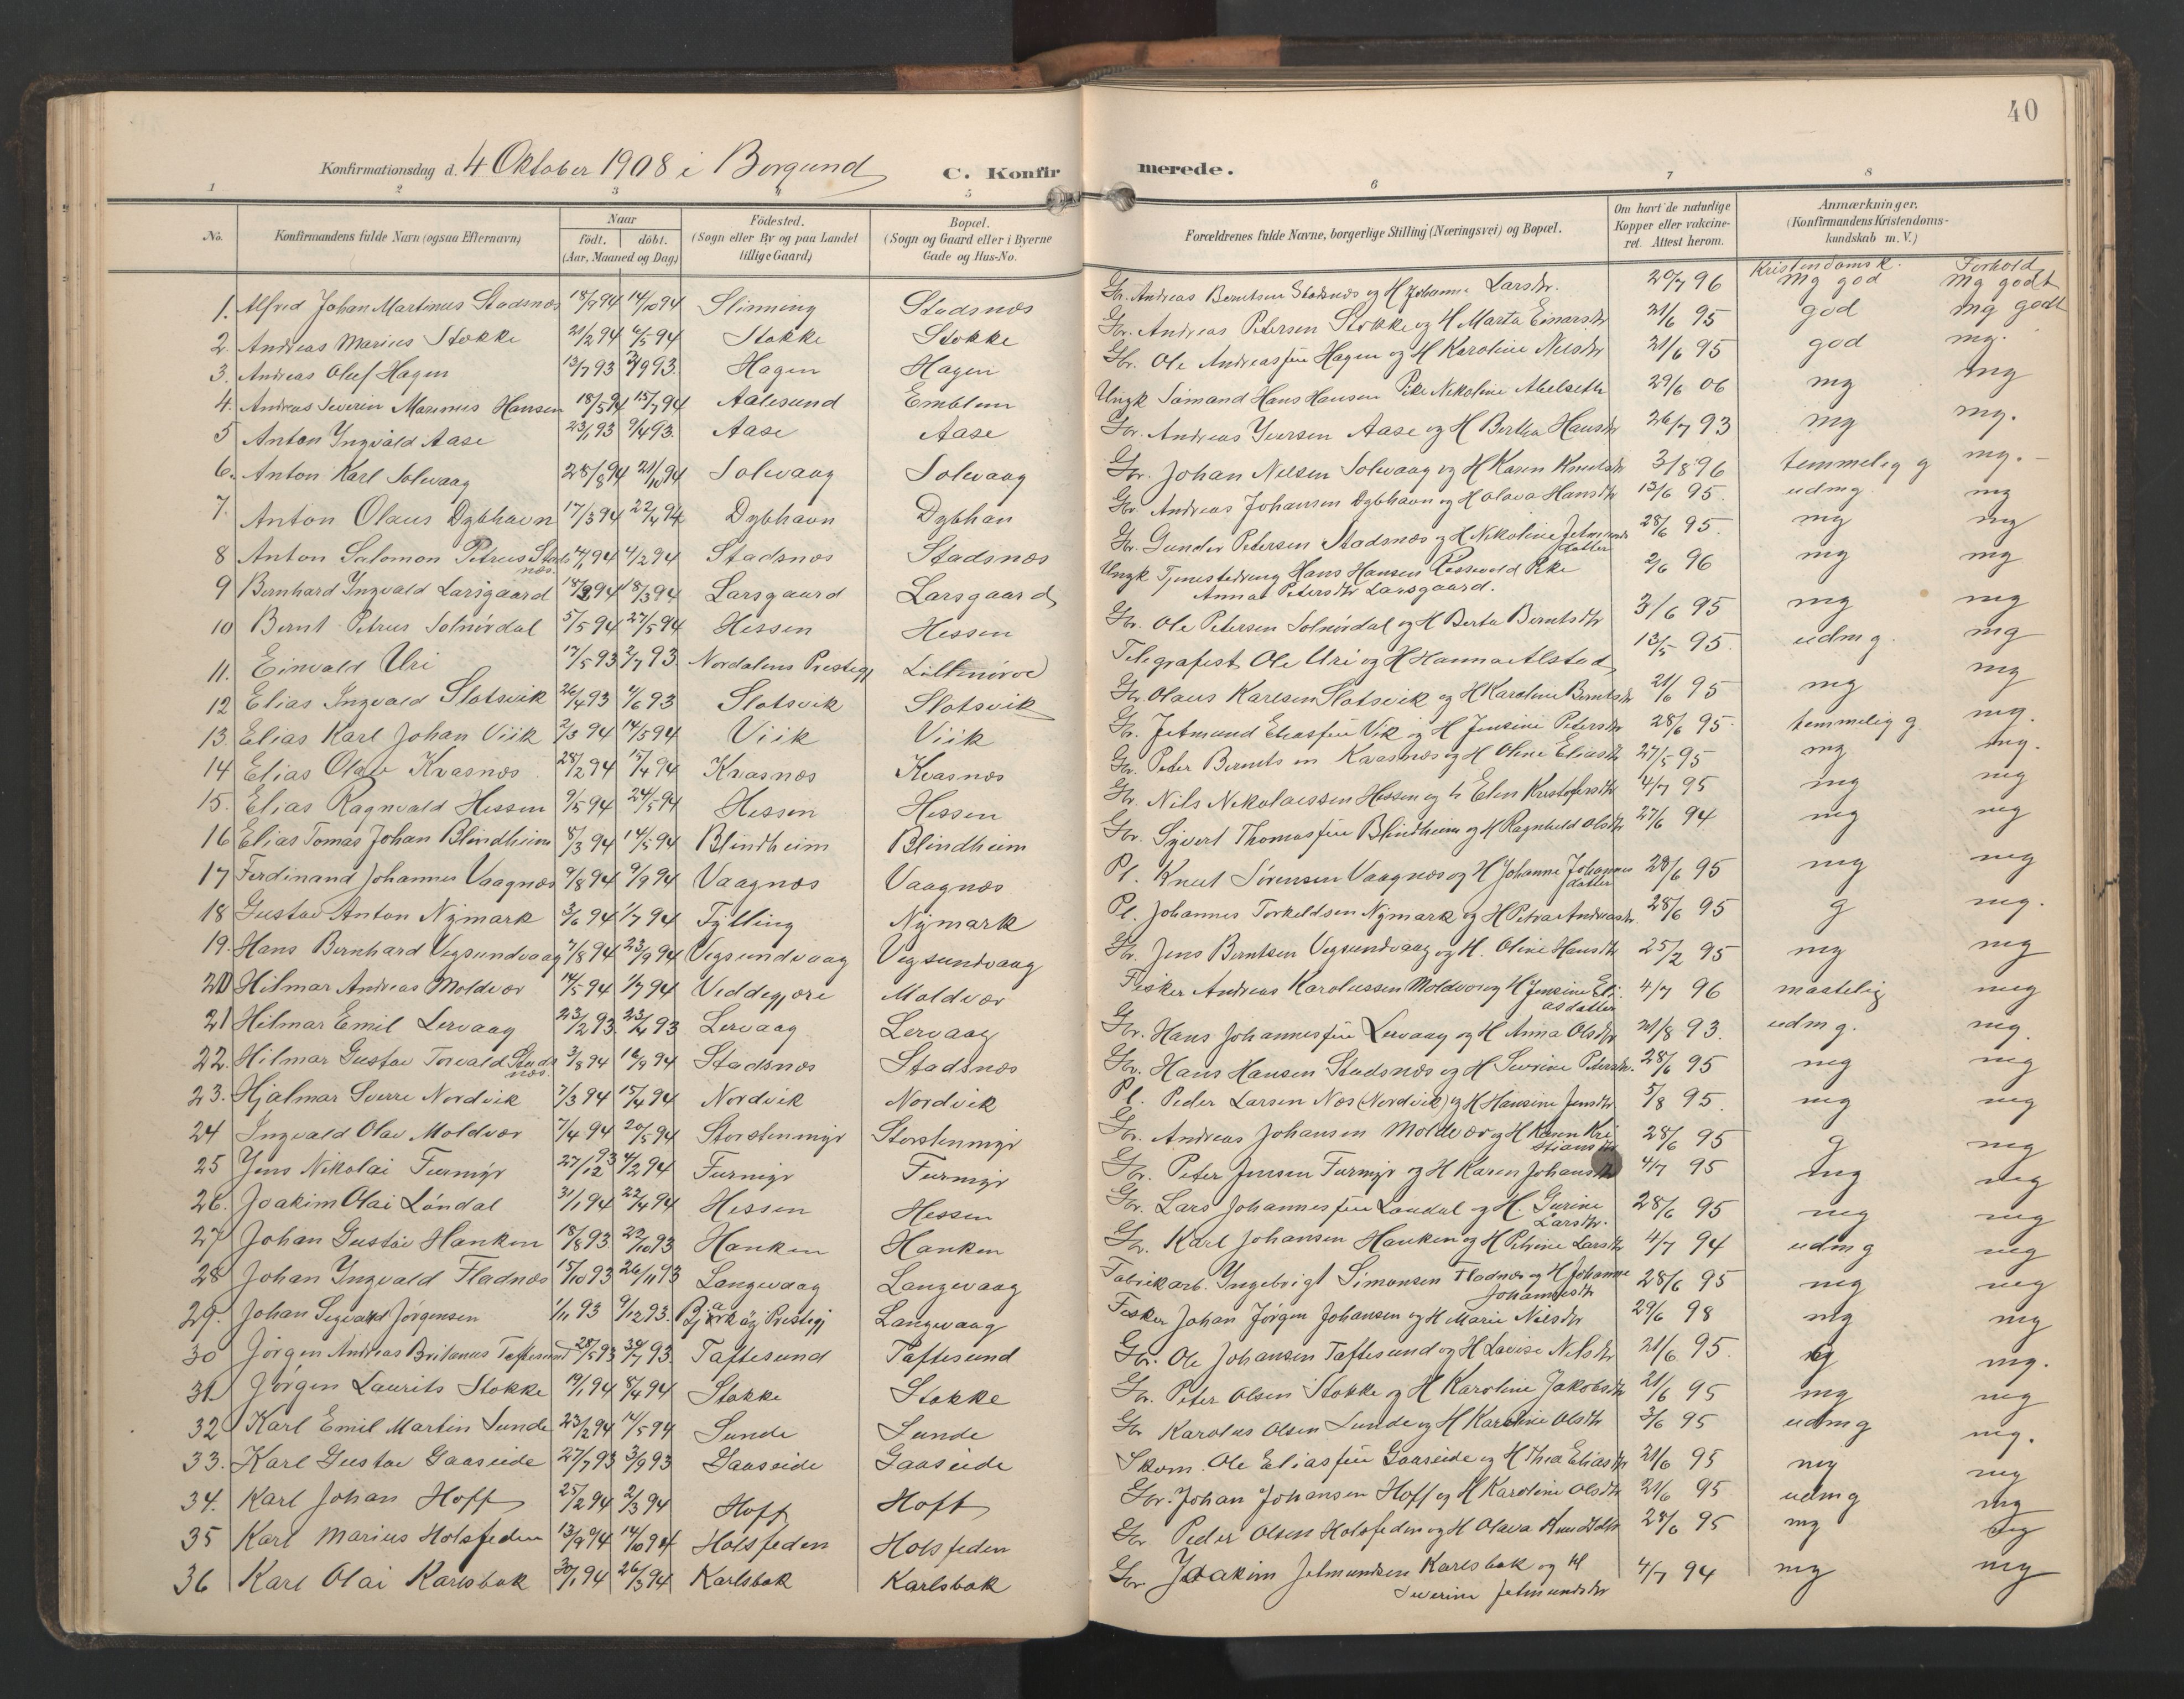 40
Konfirmationsdag d. 4 Oktober 1908 i Borgund C. Konfirmerede.
1 2 3 4 5 6 7 8
No. Konfirmandens fulde Navn (ogsaa Efternavn) Naar födt. döbt. (Aar, Maaned og Dag) Födested. (Sogn eller By og paa Landet tillige Gaard) Bopæl. (Sogn og Gaard eller i Byerne Gade og Hus-No. Forældrenes fulde Navne, borgerlige Stilling (Næringsvei) og Bopæl. Om havt de naturlige Kopper eller vakcineret. Attest herom. Anmærkninger. (Konfirmandens Kristendomskundskab m. V.)
Kristendomsk. Forhold
1. Alfred Johan Martinus Stadsnes 18/9 94 14/10 94 Slinning Stadsnes Gbr. Andreas Berntsen Stadsnes og H Johanne Larsdtr. 20/7 96 Mg god Mg godt
2. Andreas Marius Stokke 21/2 94 6/5 94 Stokke Stokke Gbr. Andreas Petersen Stokke og H Marta Einarsdtr 21/6 95 god mg godt
3. Andreas Oluf Hagen 13/7 93 24/9 93. Hagen Hagen Gbr. Ole Andreassen Hagen og H Karoline Nilsdtr 21/6 95 god mg.
4. Andreas Severin Marinus Hansen 18/5 94 15/7 94 Aalesund Emblem Ungk Sømand Hans Hansen Pike Nikoline Abelseth 29/6 06 mg mg
5 Anton Ingvald Aase 23/1 93 9/4 93. Aase Aase Gbr. Andreas Iversen Aase og H Bertha Hansdtr 26/7 93 mg mg.
6. Anton Karl Solevaag 28/8 94 21/10 94 Solevaag Solevaag Gbr. Johan Nilsen Solevaag og H Karen Knutsdtr 3/8 96 temmelig g mg.-
7. Anton Olaus Dybhavn 17/3 94 22/4 94 Dybhavn Dybhavn Gbr. Andreas Johansen Dybhavn og H Olava Hansdtr 13/6 95. udmg mg
8 Anton Salomon Petrus Stadsnes. 94 4/2 94 Stadsnes Stadsnes Gbr. Gunder Petersen Stadsnes og H Nikoline Jetmundsdatter 28/6 95. mg mg
9 Bernhard Ingvald Larsgaard 18/2 94 18/3 94 Larsgaard Larsgaard Ungk Tjenestedreng Hans Hansen Pike Anna Petersdtr Larsgaard. 2/6 96 mg mg
10 Bernt Petrus Solnørdal 5/5 94 27/5 94 Hessen Hessen Gbr. Ole Petersen Solnørdal og H Berta Berntsdtr 3/6 95 mg mg
11. Einvald Uri 17/5 93 2/7 93. Nordalens Prestegj Lillenørve Telegrafist Ole Uri og H Hanna Alstad 13/5 95. udmg. mg
12 Elias Ingvald Slotsvik 26/4 93 4/6 93 Slotsvik Slotsvik Gbr. Olaus Karlsen Slotsvik og H Karoline Berntsdtr 21/6 95 mg mg
13. Elias Karl Johan Viik 2/3 94 14/5 94 Viik Viik Gbr. Jetmund Eliassen Vik og H Jensine Petersdtr 28/6 95. temmelig g mg.
14 Elias Olav Kvasnes 28/2 94 15/4 94 Kvasnes Kvasnes Gbr. Peter Berntsen Kvasnes og H Oline Eliasdtr 27/5 95 mg mg.
15. Elias Ragnvald Hessen 9/5 94 24/5 94 Hessen Hessen Gbr. Nils Nikolaissen Hessen og H Elen Kristofersdtr 4/7 95 mg mg
16 Elias Tomas Johan Blindheim 8/3 94 14/5 94 Blindheim Blindheim Gbr. Syvert Thomassen Blindheim og H Ragnhild Olsdtr 27/6 94 mg mg
17 Ferdinand Johannes Vaagnes 9/8 94 9/9 94 Vaagnes Vaagnes Pl. Knut Sørensen Vaagnes og H Johanne Johannesdatter 28/6 95 mg mg
18 Gustav Anton Nymark 3/6 94 1/7 94 Fylling Nymark Pl. Johannes Torkeldsen Nymark og H Petra Andreasdtr. 28/6 95 g mg.
19. Hans Bernhard Vegsundvaag 7/8 94 23/9 94 Vegsundvaag Vegsundvaag Gbr. Jens Berntsen Vegsundvaag og H. Oline Hansdtr 25/2 95 mg mg
20 Hilmar Andreas Moldver 14/5 94 1/7 94 Veddegjøre Moldver Fisker Andreas Karolussen Moldver og H Jensine Eliasdatter 4/7 96 maatelig mg
21 Hilmar Emil Lervaag 23/2 93. 23/4 93 Lervaag Lervaag Gbr. Hans Johannessen Lervaag og H Anna Olsdtr 21/8 93. udmg. mg.
22. Hilmar Gustav Torvald Stadsnes. 3/8 94 16/9 94 Stadsnes Stadsnes Gbr. Hans Hansen Stadsnes og H Severine Petersdtr. 28/6 95 mg mg
23. Hjalmar Sverre Nordvik 7/3 94 15/4 94 Nordvik Nordvik Pl. Peder Larsen Nes (Nordvik) og H Hansine Jensdtr 5/8 95. mg mg
24 Ingvald Olav Moldver 7/4 94 20/5 94 Storstenmyr Storstenmyr Gbr. Andreas Johansen Moldver og H Karen Kristiansdtr 28/6 95 g mg
25 Jens Nikolai Furmyr 27/12 93 4/2 94 Furmyr Furmyr Gbr. Peter Jensen Furmyr og H Karen Johansdtr 4/7 95 mg mg
26. Joakim Olai Løndal 31/1 94 22/4 94 Hessen Hessen Gbr. Lars Johannessen Løndal og H. Gurine Larsdtr. 28/6 95 mg mg
27 Johan Gustav Hanken 18/8 93 22/10 93 Hanken Hanken Gbr. Karl Johansen Hanken og H Petrine Larsdtr 4/7 94 udmg mg
28 Johan Ingvald Fladnes 15/10 93 26/11 93 Langevaag Langevaag Fabrikarb. Ingebrigt Simonsen Fladnes og H Johanne Johannesdtr 28/6 95 mg mg
29. Johan Segvald Jørgensen 1/11 93 9/12 93. Bjarkøy Prestegj Langevaag Fisker Johan Jørgen Johansen og H Marie Nilsdtr 29/6 98 mg mg
30 Jørgen Andreas Britanus Taftesund 28/5 93 30/7 93. Taftesund Taftesund Gbr. Ole Johansen Taftesund og H Lovise Nilsdtr 21/6 95. mg.
31. Jørgen Laurits Stokke 19/1 94 8/4 94 Stokke Stokke Gbr. Peter Olsen Stokke og H Karoline Jakobsdtr 21/6 95 mg mg
32 Karl Emil Martin Sunde 23/2 94 14/5 94 Sunde Sunde Gbr Karolus Olsen Sunde og H Karoline Olsdtr 3/6 95 udmg mg.
33. Karl Gustav Gaaseide 27/7 93 3/9 93 Gaaseide Gaaseide Skom. Ole Eliassen Gaaseide og H Thea Eliasdtr 21/6 95 mg mg
34. Karl Johan Hoff 25/2 94 2/3 94 Hoff Hoff Gbr. Johan Johansen Hoff og H Karoline Olsdtr 21/6 95 udmg mg
35 Karl Marius Holsfeden 13/9 94 14/10 94 Holsfeden Holsfeden Gbr Peder Olsen Holsfeden og H Olava 28/6 95 mg mg
36 Karl Olai Karlsbak 30/1 94 26/3 94 Karlsbak Karlsbak Gbr Joakim Jetmundsen Karlsbak og H Severine Jetmundsdtr 4/7 94 mg mg